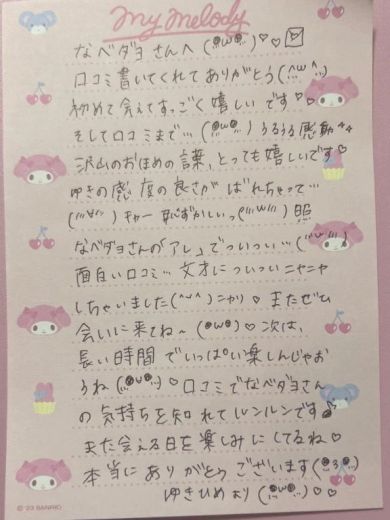 my melody
なベダヨさんへ(๑'ω'๑)♡♡
口コミ書いてくれてありがとう(^ω^)
初めて会えてすっごく嬉しいです♡♡
そして口コミまで…(๑'ω'๑)うるうる感動
沢山のおほめの言葉、とっても嬉しいです♡
ゆきの感度の良さがばれちゃって…
キャー恥ずかしいっ 照
なベダヨさんの「アレ」でついつい…
面白い口コミ…文才についついニヤニヤ
しちゃいました(^ω^)ニヤリ♡またぜひ
会いに来てね〜(๑'ω'๑)♡次は、
長い時間でいっぱい楽しんじゃお
うね(๑'ω'๑)♡口コミでなベダヨさん
の気持ちを知れてルンルンです
また会える日を楽しみにしてるね♡
本当にありがとうございます(๑'3'๑)
ゆきひめより(๑'ω'๑)♡♡
©'23 SANRIO